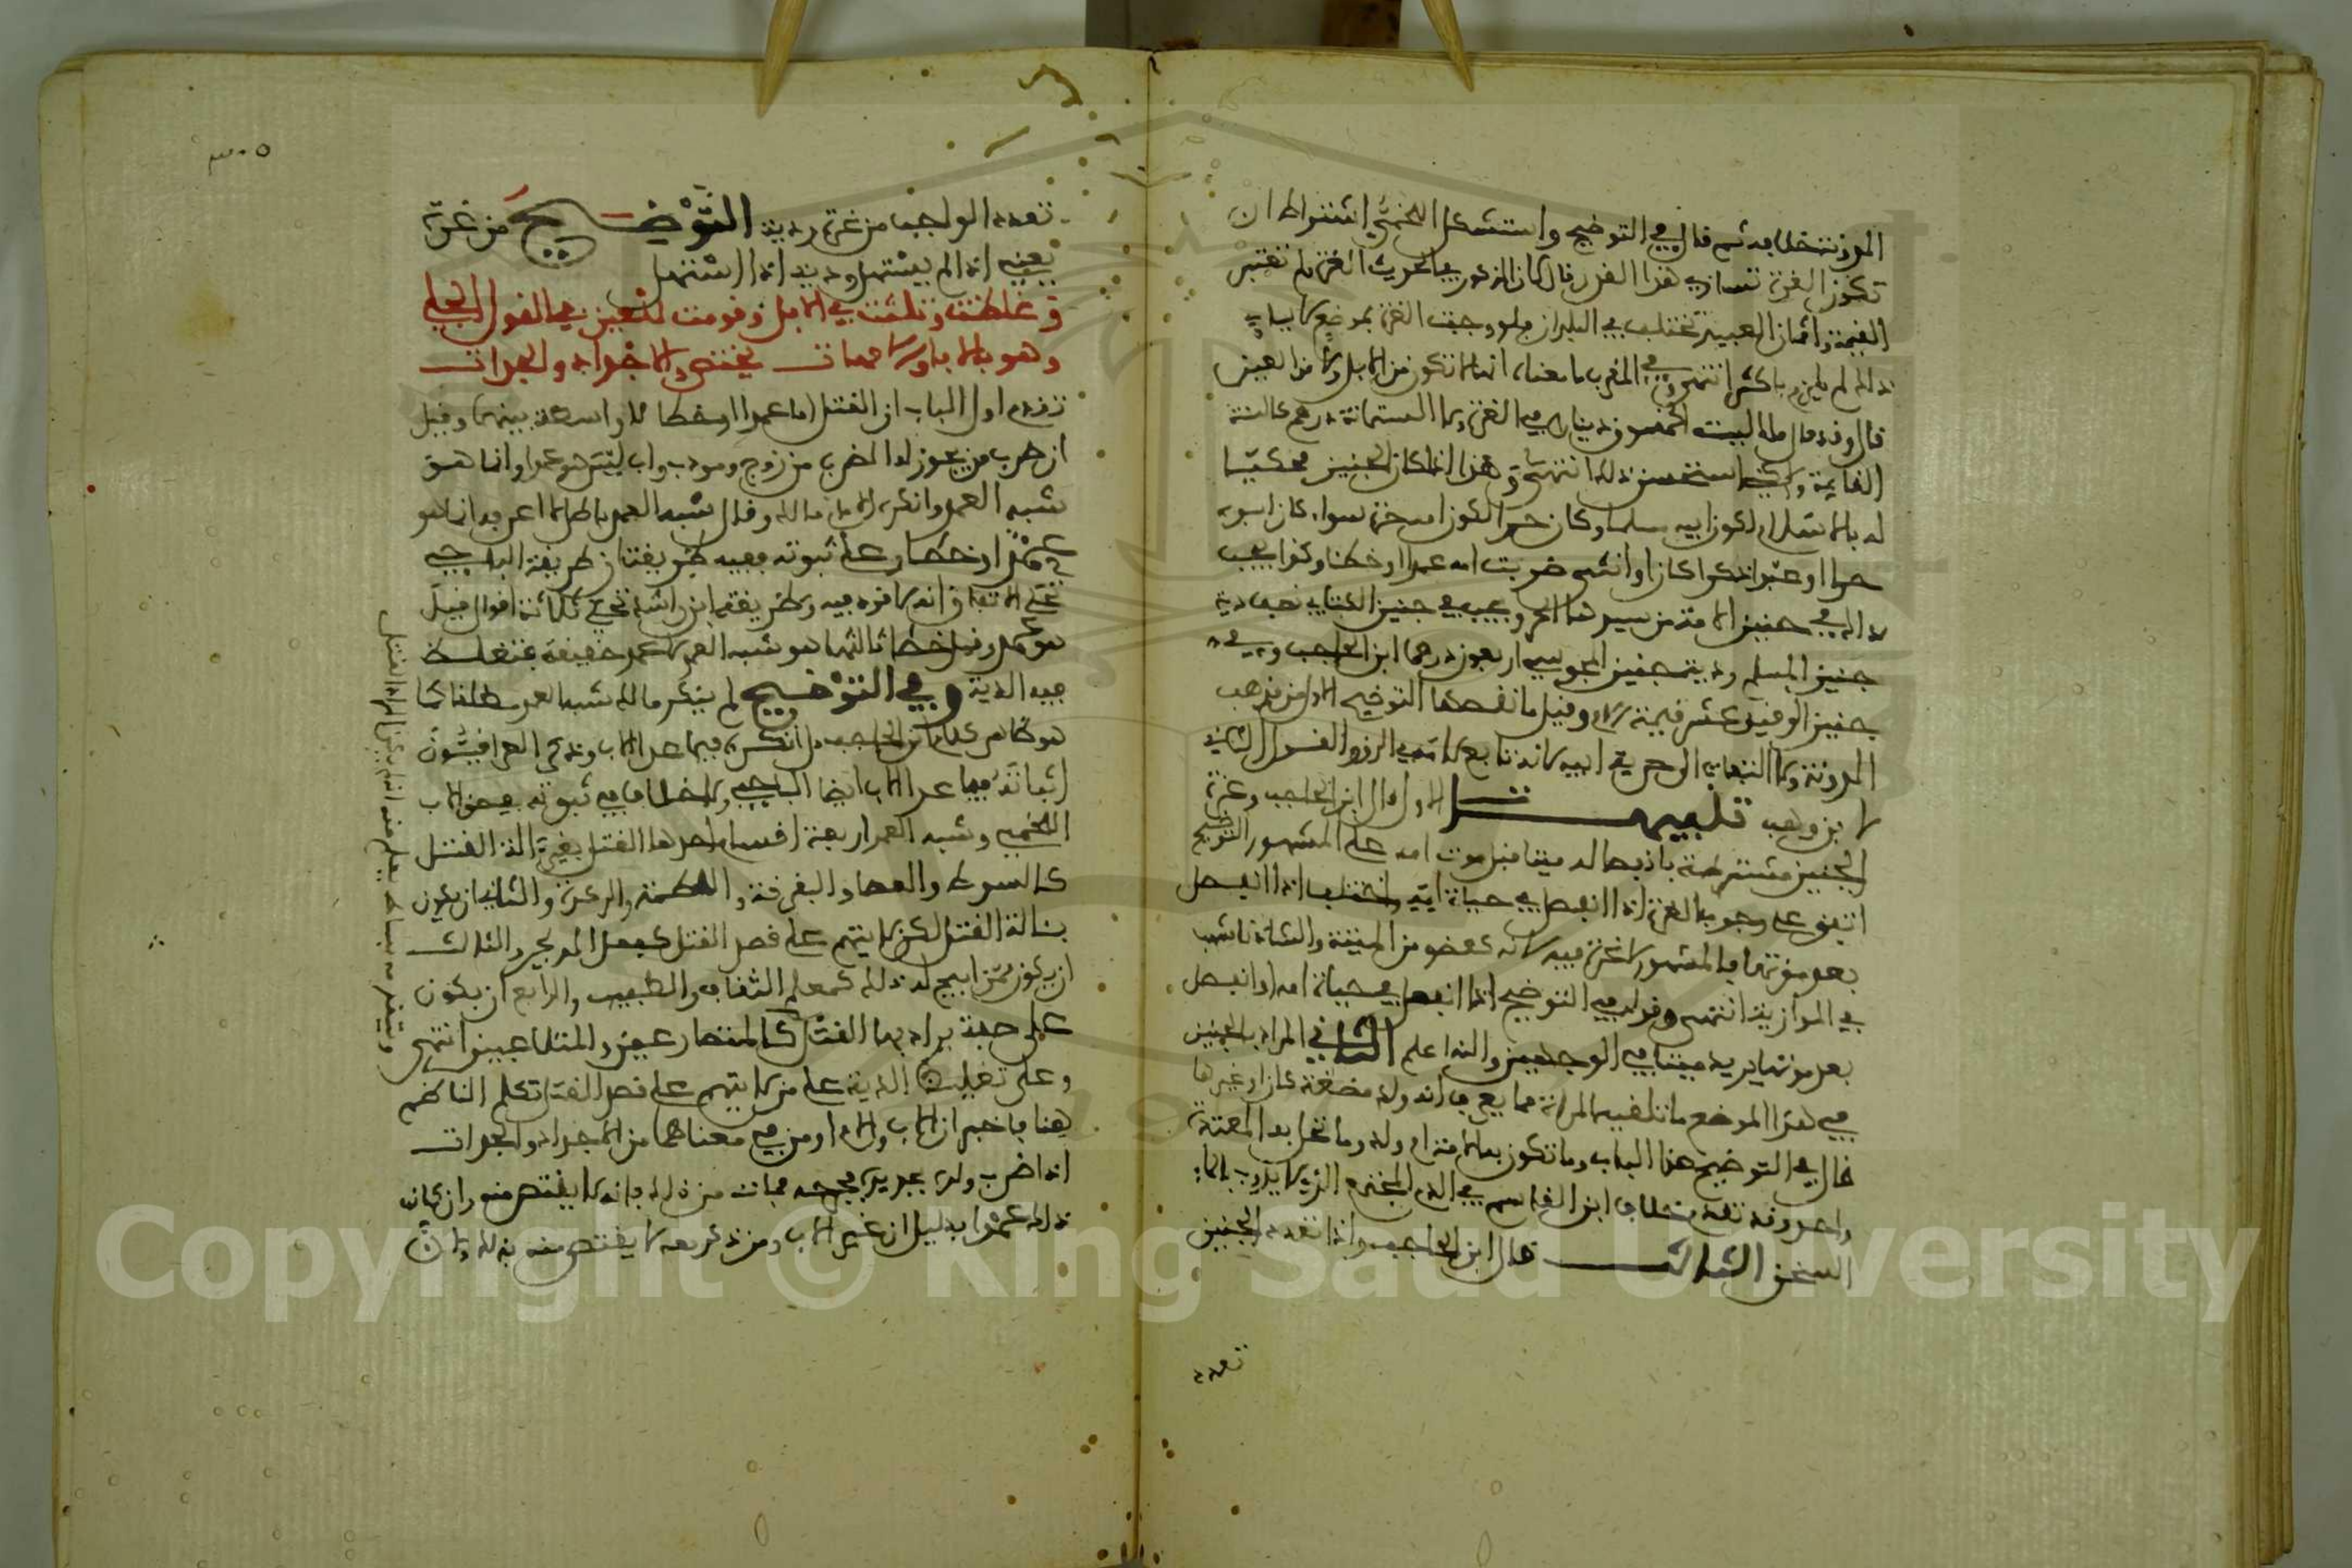 المدونة خلافه ثم قال في التوضيح واستشكل اللخمي اشتراط ان
تكون الغرة تساوي هذا القدر وقال كان المذكور في الحديث الغرة ولم تعتبر
القيمة واثمان العبيد تختلف في البلدان فلو وجبت الغرة بموضع
ذلك لم يلزم باكثر انتهى وفي المغرب ما معناه انها لا تكون من الابل ولا من العين
قال وقد قال مالك ليست الخمسون دينارا في الغرة ولا الستمائة درهم كالسنة
القايمة واستحسن ذلك انتهى وهذا اذا كان الجنين محكوما
له بالاسلام لكون ابيه مسلما وكان حرا لكون امه حرة سواء كان ابوه
حرا او عبدا ذكرا كان او انثى ضربت امه عمدا او خطا وكذا يجب
ذلك في جنين الامة من سيدها الحر ويجب في جنين الكتابي نصف دية
جنين المسلم ودية جنين المجوسي اربعون درهما ابن الحاجب وفي
جنين الرقيق عشر قيمة الام وقيل ما نقصها التوضيح الاول مذهب
المدونة ولا التفات الى حرية ابيه لانه تابع لامه في الرق والقول الثاني
لابن وهب تنبيهات الاول قال ابن الحاجب وغرة
الجنين مشترطة بانفصاله ميتا قبل موت امه على المشهور التوضيح
اتفق على وجوب الغرة اذا انفصل في حياة امه واختلف اذا انفصل
بعد موتها فالمشهور لا غرة فيه لانه كعضو من الميتة والشاذ لاشهب
في الموازية انتهى وقوله في التوضيح اذا انفصل في حياة امه او انفصل
بعد موتها يريد ميتا في الوجهين والله اعلم الثاني المراد بالجنين
في هذا الموضع ما تلقيه المرأة مما يعرف انه ولد مضغة كان او غيرها
قال في التوضيح هذا الباب وما تكون به الامة ام ولد وما تحل به المعتدة
واحد وقد تقدم خلاف ابن القاسم في الدم المجتمع الذي لا يذوب بالماء
السخن الثالث قال ابن الحاجب واذا تعدد الجنين
تعدد
تعدد الواجب من غرة ودية التوضيح من غرة
يعني اذا لم يستهل ودية اذا استهل
وغلظت وثلثت في الابل وقومت للعين في القول الجلي
وهو بالاباء والامهات يختص والاجداد والجدات
تقدم اول الباب ان القتل اما عمد او خطا لا واسطة بينهما وقيل
ان ضرب من يجوز له الضرب من زوج ومودب واب ليس هو عمدا وانما هو
شبه العمد وانكره الامام مالك وقال شبه العمد باطل لا اعرفه انما هو
عمد او خطا وعلى ثبوته ففيه طريقتان طريقة الباجي
على الاتفاق انه لا قود فيه وطريقة ابن راشد تحكي ثلاثة اقوال قيل
هو عمد وقيل خطا ثالثها هو شبه العمد لا عمد حقيقة فتغلظ
فيه الدية وفي التوضيح لم ينكر مالك شبه العمد مطلقا كما
هو ظاهر كلام ابن الحاجب بل انكره فيما عدا الاب وذكر العراقيون
اثباته فيما عدا الاب ايضا الباجي ولا خلاف في ثبوته في حق الاب
اللخمي وشبه العمد اربعة اقسام احدها القتل بغير آلة القتل
كالسوط والعصا والبندقة واللطمة والوكزة والثاني ان يكون
بآلة القتل لكن لا يتهم على قصد القتل كفعل المدلجي والثالث
ان يكون ممن ابيح له ذلك كمعلم الثقاف والطبيب والرابع ان يكون
على صفة يراد بها القتل كالمتصارعين والمتلاعبين انتهى
وعلى تغليظ الدية على من لا يتهم على قصد القتل تكلم الناظم
هنا فاخبر ان الاب والام او من في معناهما من الاجداد والجدات
اذا ضرب ولده بحديد فجرحه فمات من ذلك فانه لا يقتص منه وان كان
ذلك عمدا بدليل ان غير الاب ومن ذكر معه لا يقتص منه بذلك